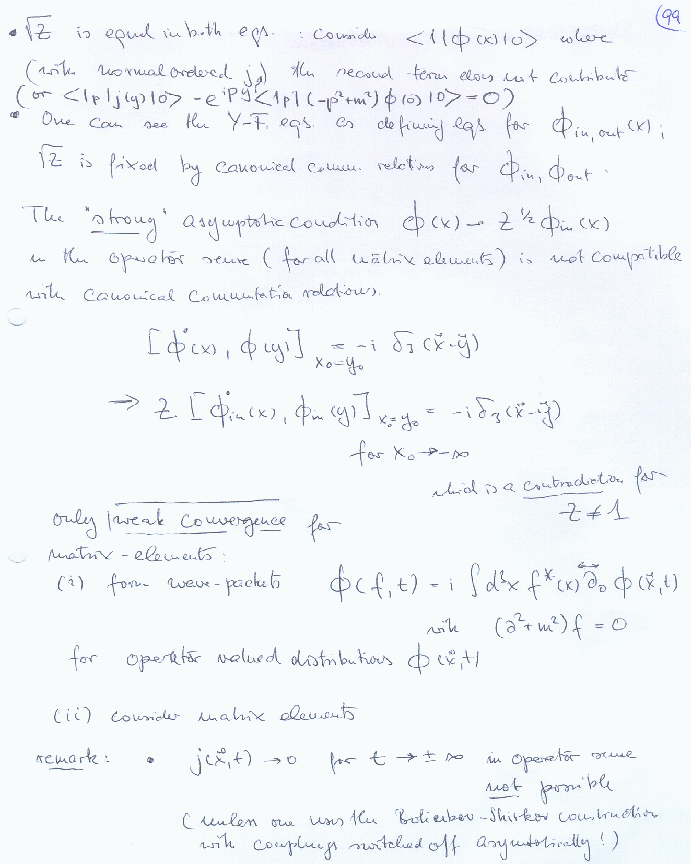 99
• √Z is equal in both eqs. : consider <1|ϕ(x)|0> where
(with normal ordered j) the second term does not contribute
(or <1p|j(y)|0> = e^{ipy}<1p|(-p²+m²)ϕ(0)|0> = 0)
• One can see the Y-F. eqs. as defining eqs for ϕ_{in,out}(x);
√Z is fixed by canonical comm. relations for ϕ_in, ϕ_out.
The "strong" asymptotic condition ϕ(x) → Z^{1/2} ϕ_in(x)
in the operator sense (for all matrix elements) is not compatible
with canonical commutation relations.
[ϕ̇(x), ϕ(y)]_{x₀=y₀} = -i δ₃(x⃗-y⃗)
⇒ Z. [ϕ̇_in(x), ϕ_in(y)]_{x₀=y₀} = -i δ₃(x⃗-y⃗)
for x₀ → -∞
which is a contradiction for
Z ≠ 1
only weak convergence for
matrix-elements:
(i) form wave-packets ϕ(f,t) = i ∫d³x f*(x) ∂↔₀ ϕ(x⃗,t)
with (∂²+m²)f = 0
for operator valued distributions ϕ(x⃗,t)
(ii) consider matrix elements
remark: • j(x⃗,t) → 0 for t → ±∞ in operator sense
not possible
(unless one uses the Boliubov-Shirkov construction
with couplings switched off asymptotically!)